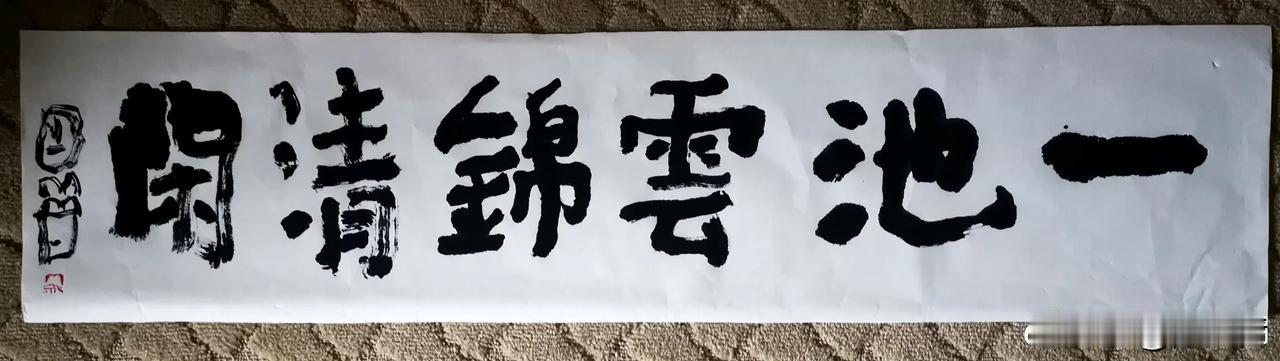 一池雲錦清閑